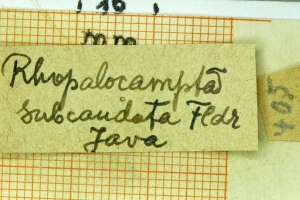 16
mm
Rhopalocampta
subcaudata Fldr
Java
405